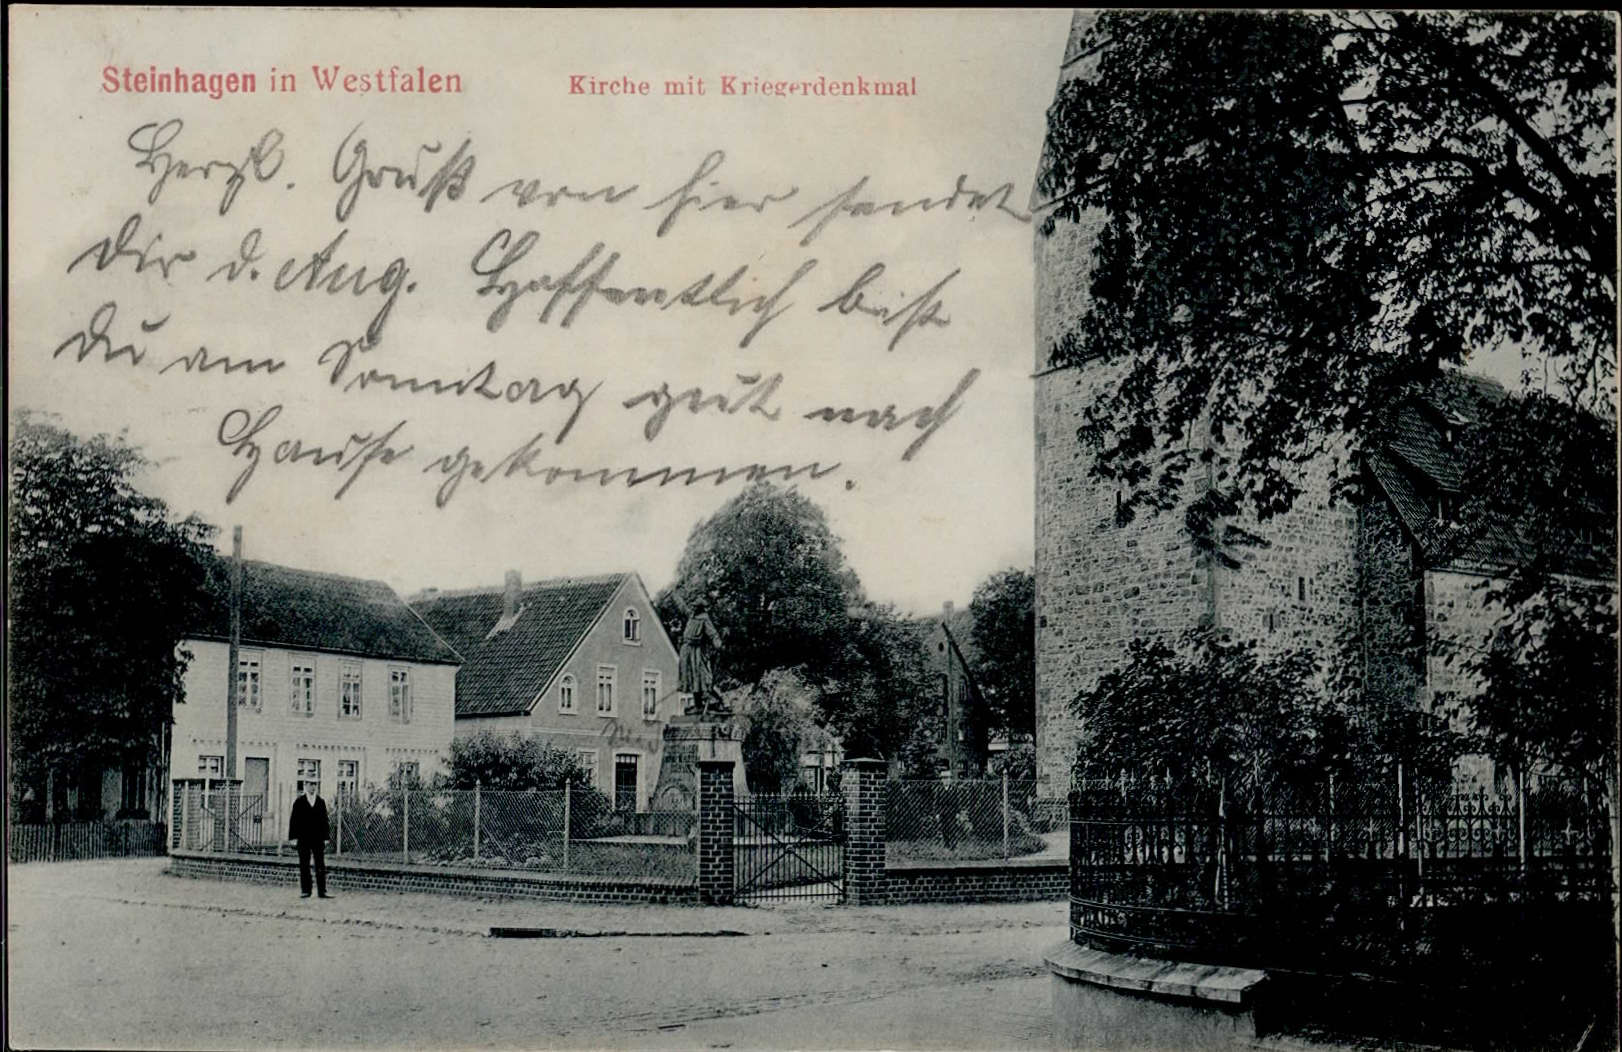 Steinhagen in Westfalen
Kirche mit Kriegerdenkmal
Herzl. Gruß von hier sendet
Dir d. Aug. Hoffentlich bist
Du am Sonntag gut nach
Hause gekommen.